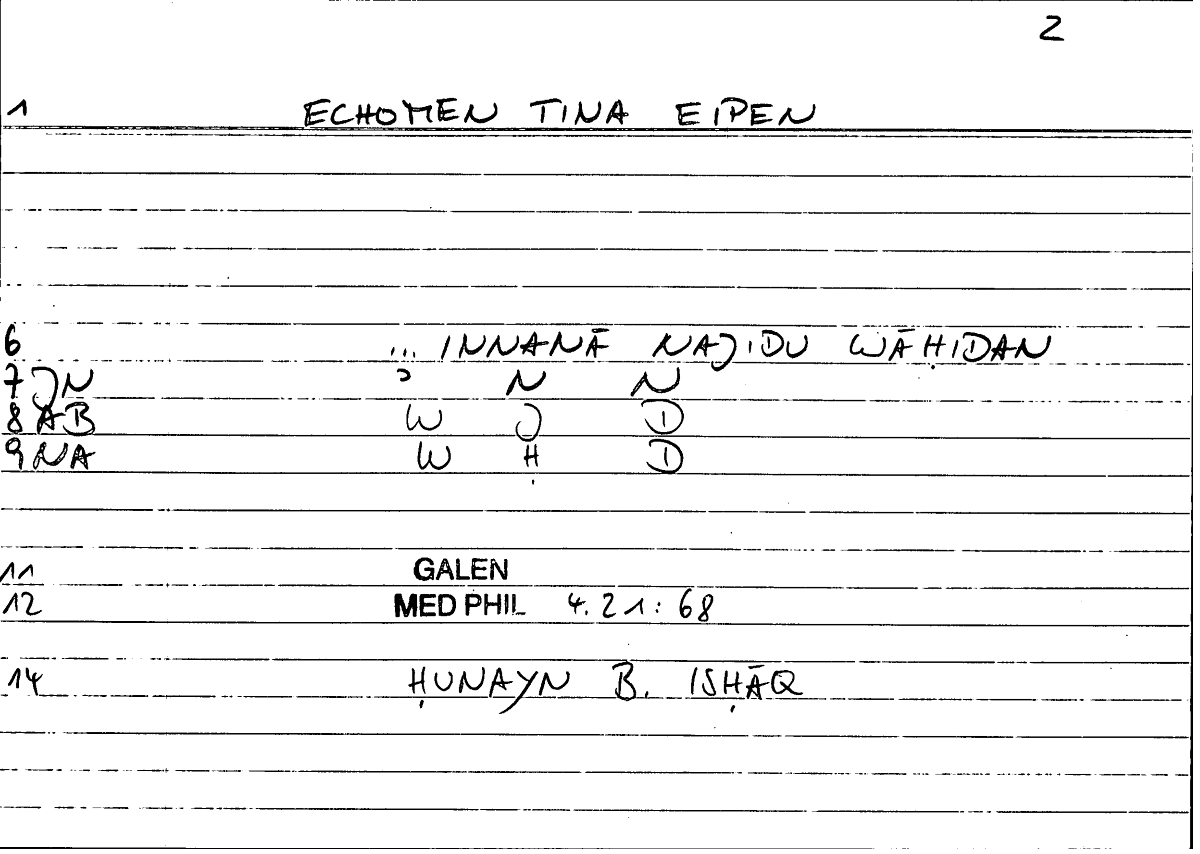 2
1 ECHOMEN TINA EIPEN
6 ... INNANĀ NAJIDU WĀḤIDAN
7 JN ʾ N N
8 AB W J D
9 NA W Ḥ D
11 GALEN
12 MED PHIL 4.21:68
14 ḤUNAYN B. ISḤĀQ